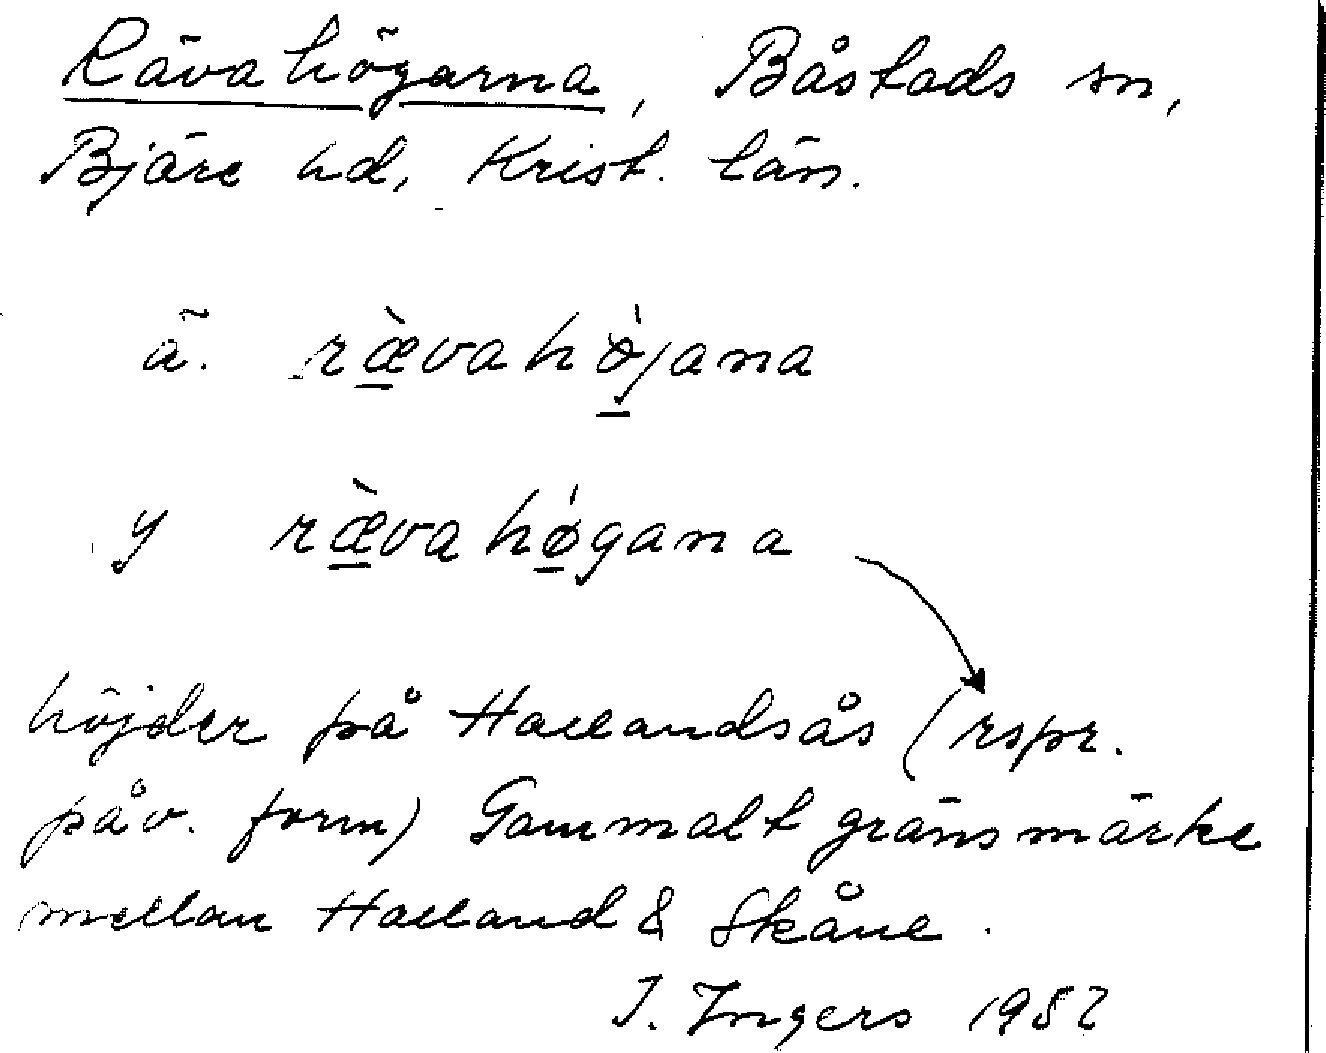 Rävahögarna, Båstads sn,
Bjäre hd, Krist. län.
ä. ræ̀vahø̀jana
y ræ̀vahǿgana
höjder på Hallandsås (rspr.
påv. form) Gammalt gränsmärke
mellan Halland & Skåne.
I. Ingers 1982